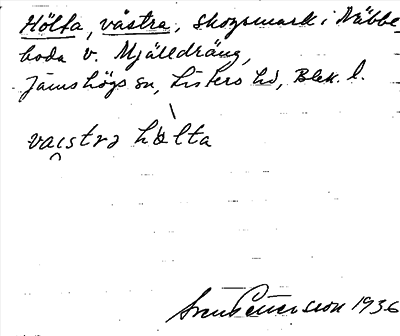 Hölta, västra, skogsmark i Näbbe-
boda v. Mjälldräng,
Jämshögs sn, Listers hd, Blek. l.
vaestra hælta
Sven Pettersson 1936